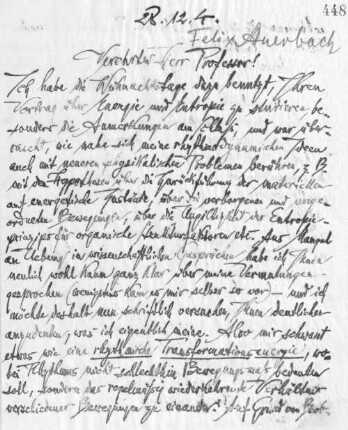 448
28.12.4.
Felix Auerbach
Verehrter Herr Professor!
Ich habe die Weihnachtstage dazu benutzt, Ihren
Vortrag über Energie und Entropie zu studieren be-
sonders die Anmerkungen am Schluß, und war über-
rascht, wie nahe sich meine rhythmodynamischen Ideen
auch mit neueren physikalischen Problemen berühren, z. B.
mit den Hypothesen über die Zurückführung der materiellen
auf energetische Zustände, über die verborgenen und unge-
ordneten Bewegungen, über die Ungiltigkeit des Entropie-
prinzips für organische etc. Aus Mangel
an Uebung in wissenschaftlichen Gesprächen habe ich Ihnen
neulich wohl kaum ganz klar über meine Vermutungen
gesprochen (wenigstens kam es mir selber so vor) — und ich
möchte deshalb nun schriftlich versuchen, Ihnen deutlicher
anzudeuten, was ich eigentlich meine. Also mir schwant
etwas wie eine rhythmische Transformationsenergie, wo-
bei Rhythmus nicht schlechthin Bewegungsmaß bedeuten
soll, sondern das regelmäßig wiederkehrende Verhältnis
verschiedener Bewegungen zu einander. Auf Grund von